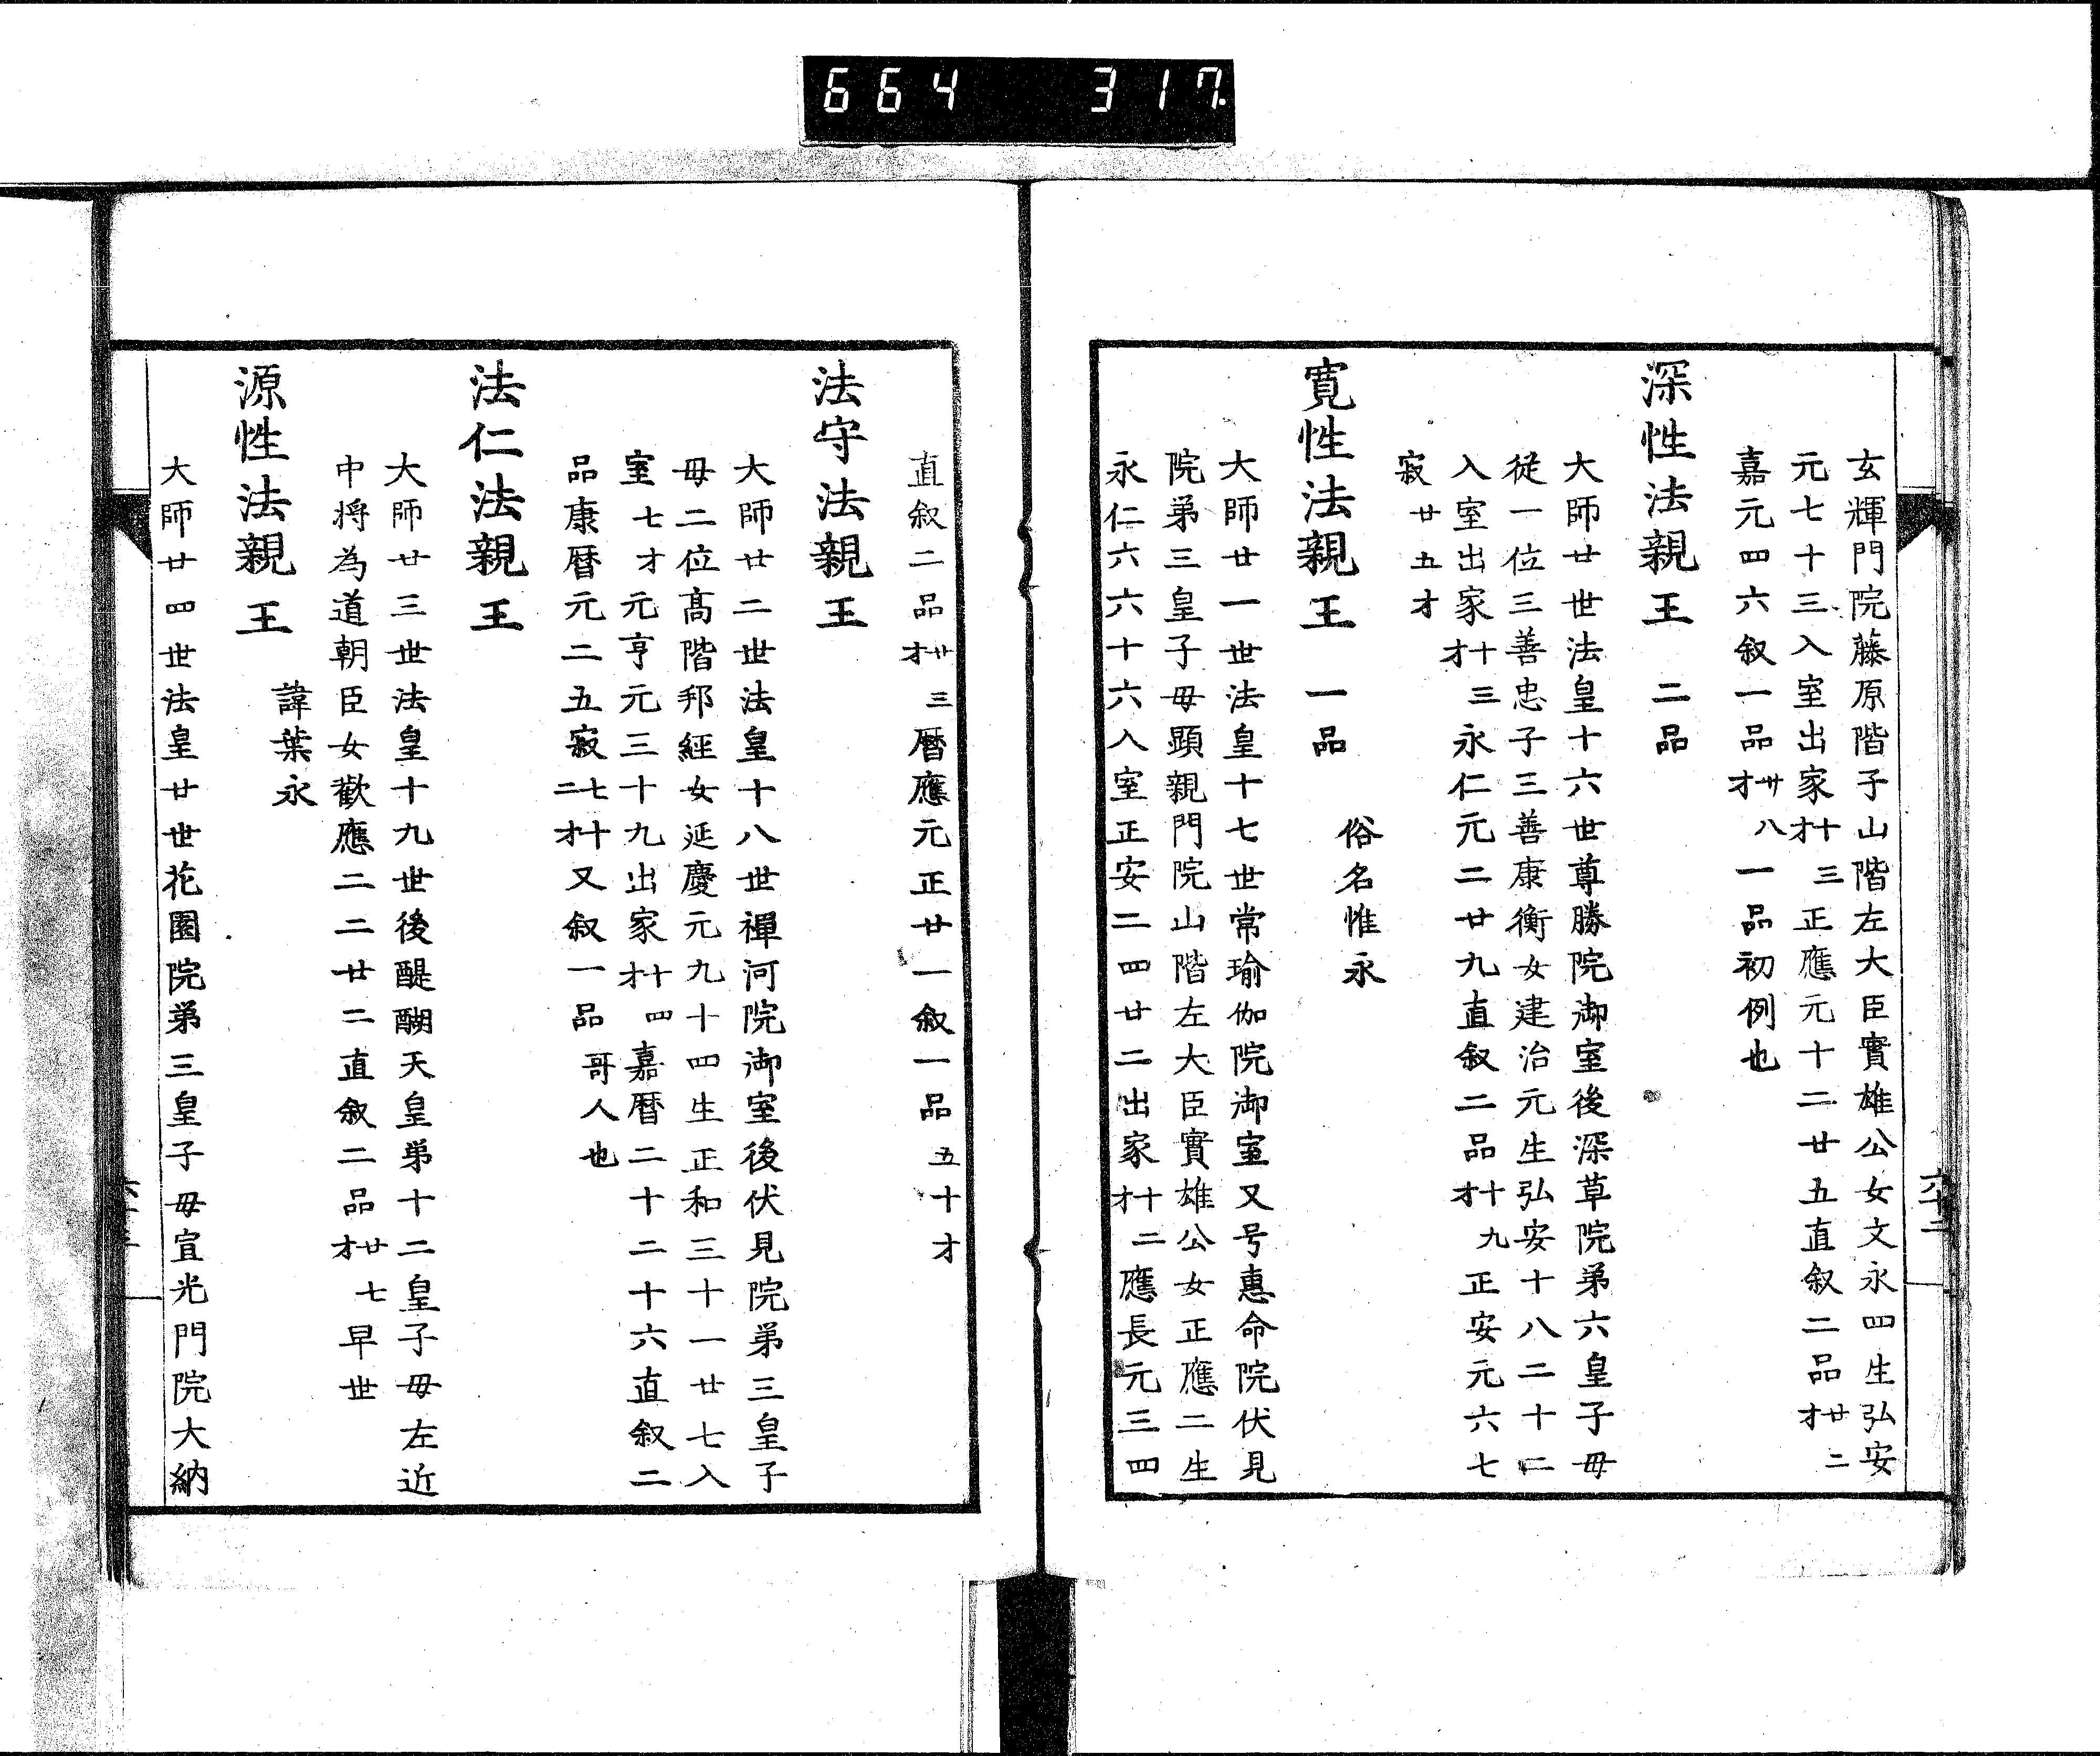 664 317
玄輝門院藤原階子山階左大臣實雄公女文永四生弘安
元七十三入室出家十三才正應元十二廿五直叙二品廿二才
嘉元四六叙一品卅八才一品初例也
深性法親王 二品
大師廿世法皇十六世尊勝院御室後深草院弟六皇子母
従一位三善忠子三善康衡女建治元生弘安十八二十二
入室出家十三才永仁元二廿九直叙二品十九才正安元六七
寂廿五才
寛性法親王 一品 俗名惟永
大師廿一世法皇十七世常瑜伽院御室又号恵命院伏見
院弟三皇子母顕親門院山階左大臣實雄公女正應二生
永仁六六十六入室正安二四廿二出家十二才應長元三四
六十二
直叙二品廿三才暦應元正廿一叙一品五十才
法守法親王
大師廿二世法皇十八世禅河院御室後伏見院弟三皇子
母二位髙階邦經女延慶元九十四生正和三十一廿七入
室七才元亨元三十九出家十四才嘉暦二十二十六直叙二
品康暦元二五寂七十二才又叙一品 哥人也
法仁法親王
大師廿三世法皇十九世後醍醐天皇弟十二皇子母左近
中将為道朝臣女歡應二二廿二直叙二品廿七才早世
源性法親王 諱葉永
大師廿四世法皇廿世花園院弟三皇子母宣光門院大納